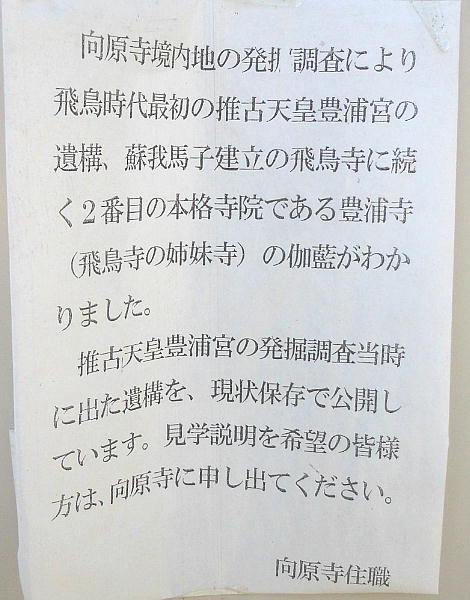 向原寺境内地の発掘調査により
飛鳥時代最初の推古天皇豊浦宮の
遺構、蘇我馬子建立の飛鳥寺に続
く2番目の本格寺院である豊浦寺
（飛鳥寺の姉妹寺）の伽藍がわか
りました。
推古天皇豊浦宮の発掘調査当時
に出た遺構を、現状保存で公開し
ています。見学説明を希望の皆様
方は、向原寺に申し出てください。
向原寺住職